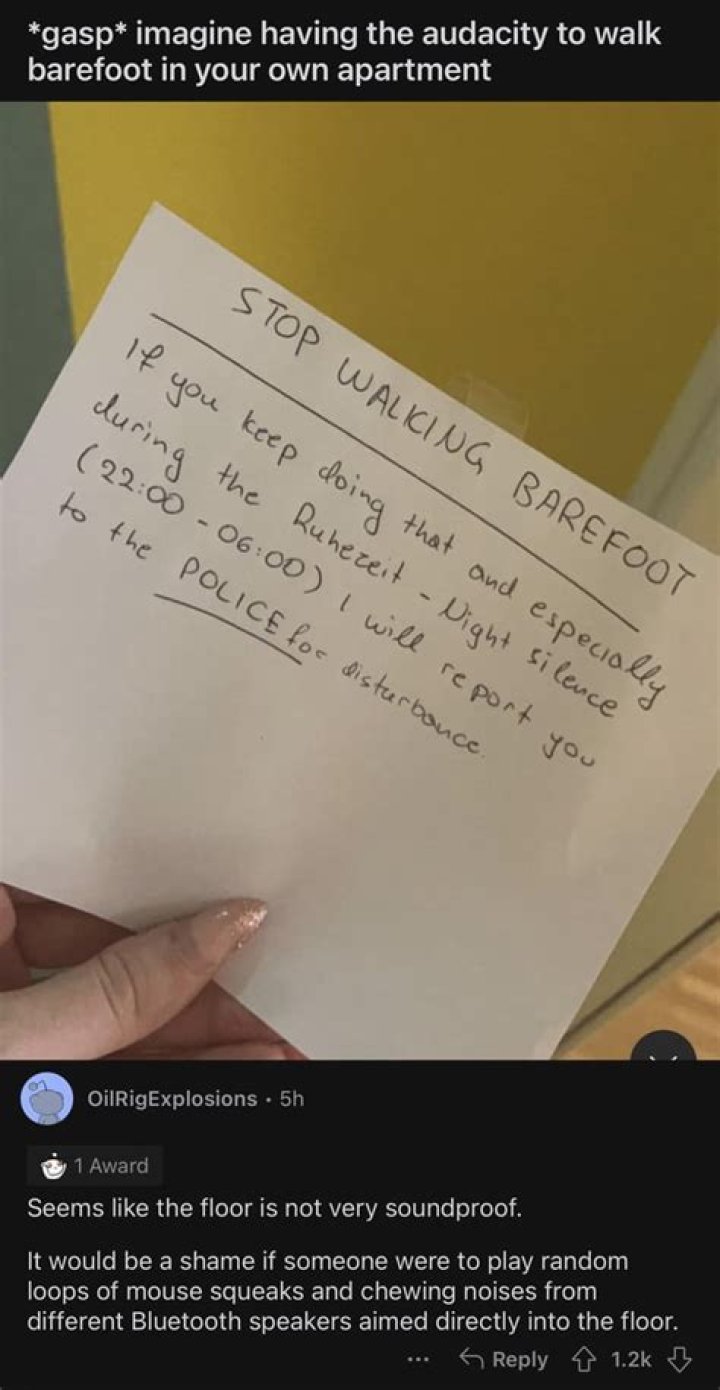 *gasp* imagine having the audacity to walk
barefoot in your own apartment
STOP WALKING BAREFOOT
If you keep doing that and especially
during the Ruhezeit - Night silence
(22:00 - 06:00) I will report you
to the POLICE for disturbance.
OilRigExplosions • 5h
1 Award
Seems like the floor is not very soundproof.
It would be a shame if someone were to play random
loops of mouse squeaks and chewing noises from
different Bluetooth speakers aimed directly into the floor.
... Reply 1.2k